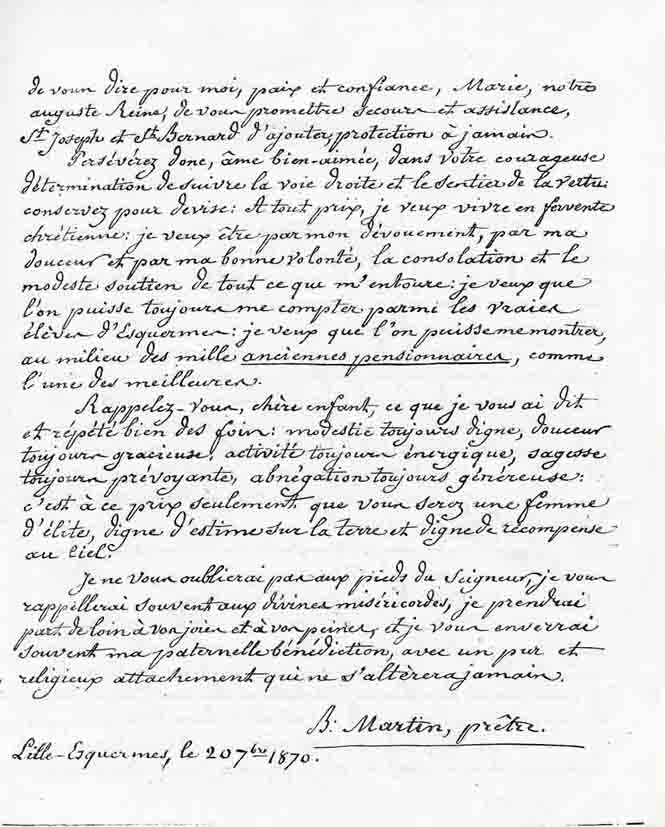 de vous dire pour moi, paix et confiance, Marie, notre
auguste Reine, de vous promettre secours et assistance,
St Joseph et St Bernard d'ajouter, protection à jamais.
Persévérez donc, âme bien-aimée, dans votre courageuse
détermination de suivre la voie droite et le sentier de la vertu:
conservez pour devise: A tout prix, je veux vivre en fervente
chrétienne: je veux être par mon dévouement, par ma
douceur et par ma bonne volonté, la consolation et le
modeste soutien de tout ce qui m'entoure: je veux que
l'on puisse toujours me compter parmi les vraies
élèves d'Esquermes: je veux que l'on puisse me montrer,
au milieu des mille anciennes pensionnaires, comme
l'une des meilleures.
Rappelez-vous, chère enfant, ce que je vous ai dit
et répété bien des fois: modestie toujours digne, douceur
toujours gracieuse, activité toujours énergique, sagesse
toujours prévoyante, abnégation toujours généreuse:
c'est à ce prix seulement que vous serez une femme
d'élite, digne d'estime sur la terre et digne de récompense
au Ciel.
Je ne vous oublierai pas aux pieds du Seigneur, je vous
rappellerai souvent aux divines miséricordes, je prendrai
part de loin à vos joies et à vos peines, et je vous enverrai
souvent ma paternelle bénédiction, avec un pur et
religieux attachement qui ne s'altèrera jamais.
B. Martin, prêtre.
Lille-Esquermes, le 20 7bre 1870.